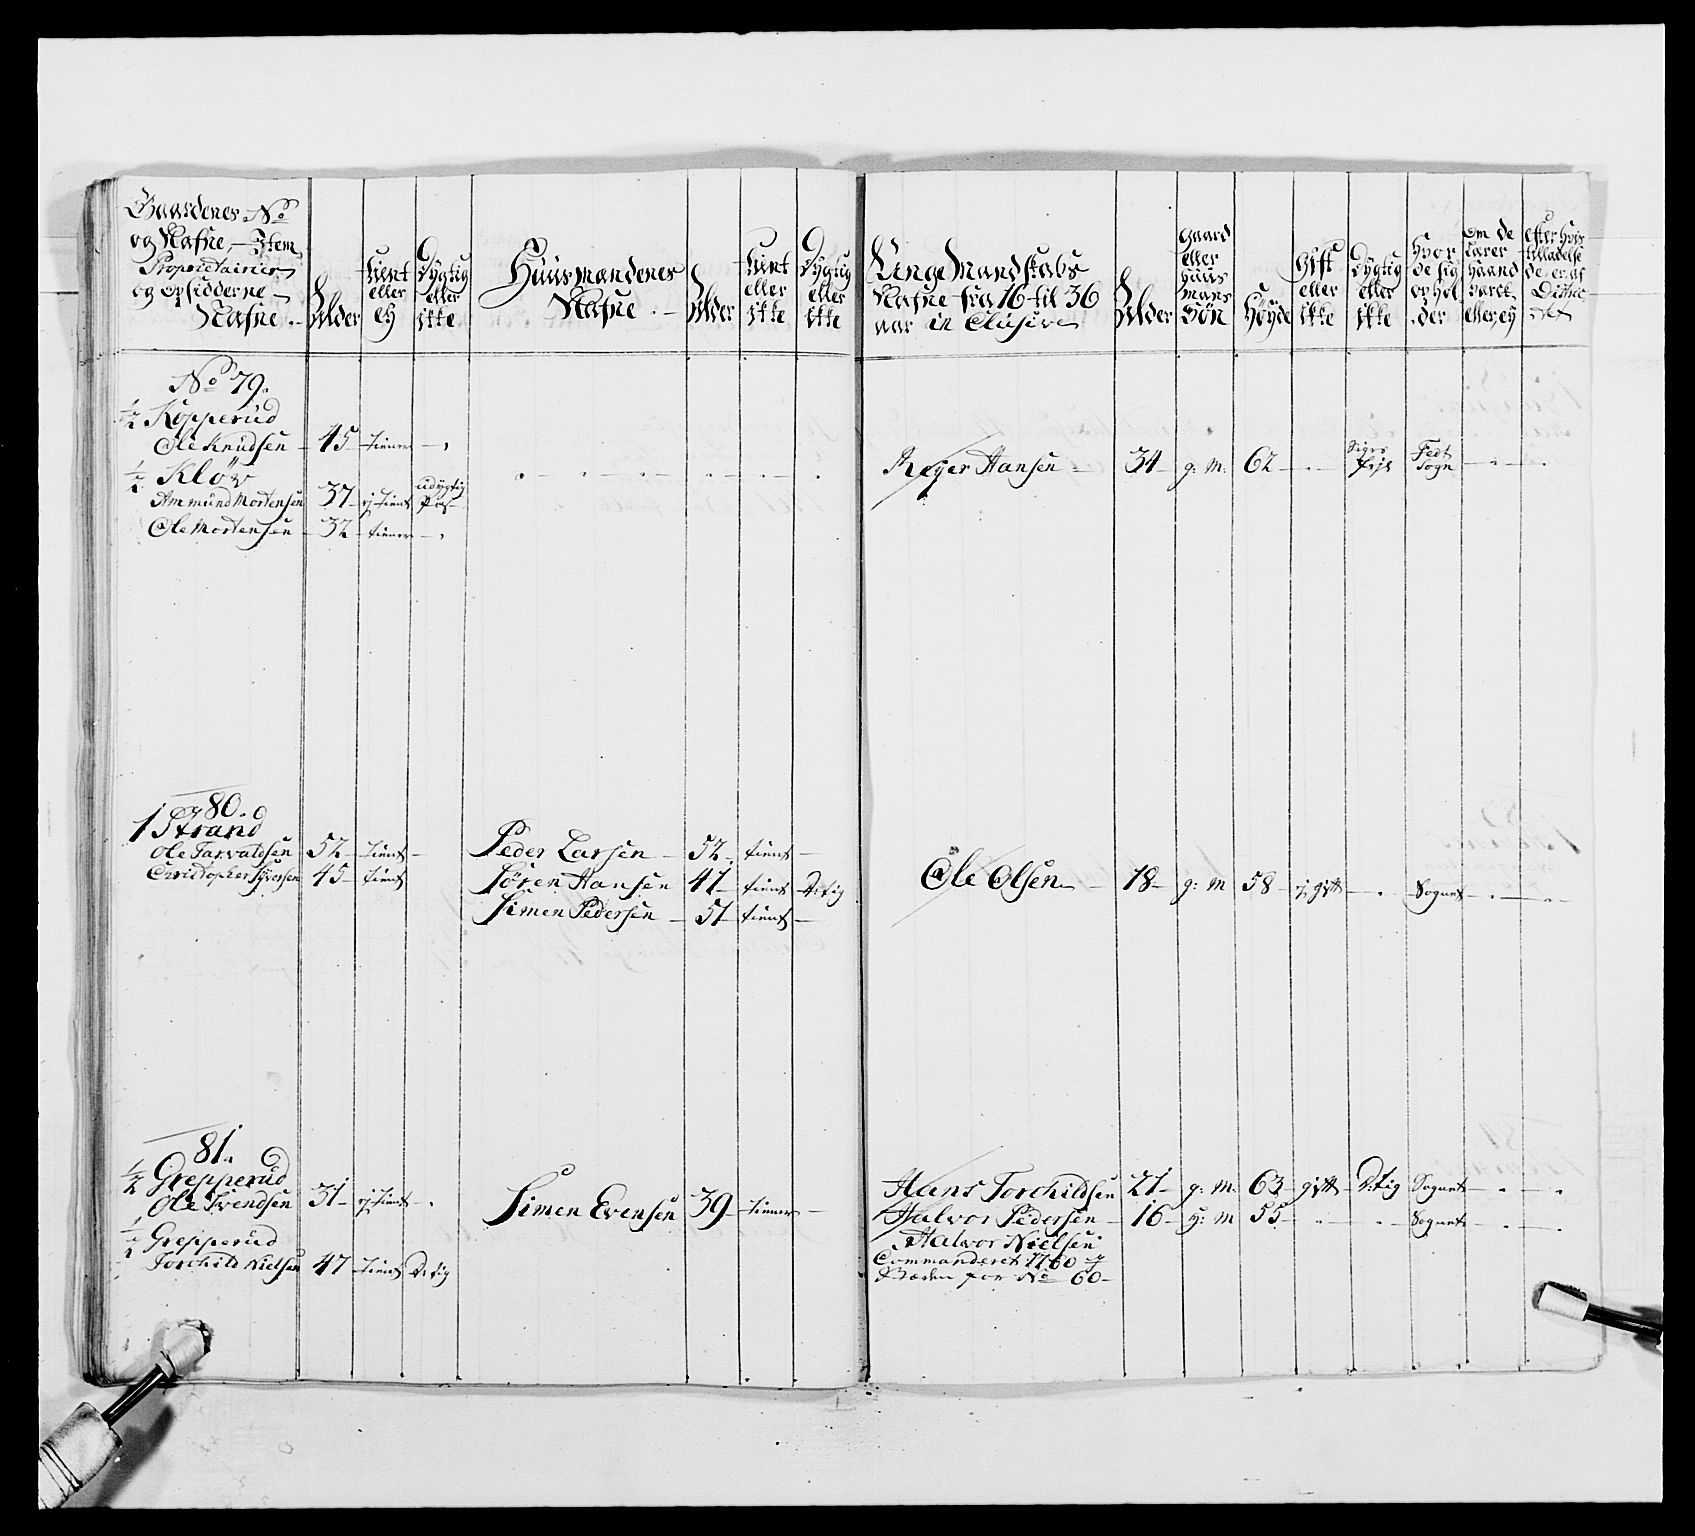 Gaardenes No
og Nafne, Item
Proprietairier
og opsidderne
Nafne
Alder
tient
eller
ey
Dygtig
eller
ikke
Huusmændenes
Nafne
Alder
tient
eller
ikke
Dygtig
eller
ikke
Unge Mandskabs
Nafne fra 16 til 36
aar in Clusive
Alder
Gaard
eller
Huus
Mans
Søn
Høyde
Gift
eller
ikke
Dygtig
eller
ikke
Hvor
de sig
ophol
der
Om de
tærer
haand
værct
eller, ey
Efter hvis
tilladelse
de er af
Distric
No 79.
1/2 Kopperud
Ole Knudsen 45 tiener
1/2 Kløv
Ammund Mortensen 37 ej tient udygtig
Ole Mortensen 32 tiener
Reyer Hansen 34 g: m: 62 Fedt
Sogn
80.
1 Strand
Ole Tarvaldsen 52 tient Peder Larsen 52 tient
Christopher Syversen 45 tient Søren Hansen 41 tient D:tig Ole Olsen 18 g: m 58 ej gift Sognet
Simen Pedersen 51 tient
81.
1/2 Grepperud Hans Torchildsen 21 g: m: 63 gift D:tig Sognet
Ole Svendsen 31 ej tient Simen Evensen 39 tiener Halvor Pedersen 16 g: m 55 Sognet
1/2 Grepperud Halvor Nielsen
Torchild Nielsen 47 tient D:tig Commanderet 1760
for No 60